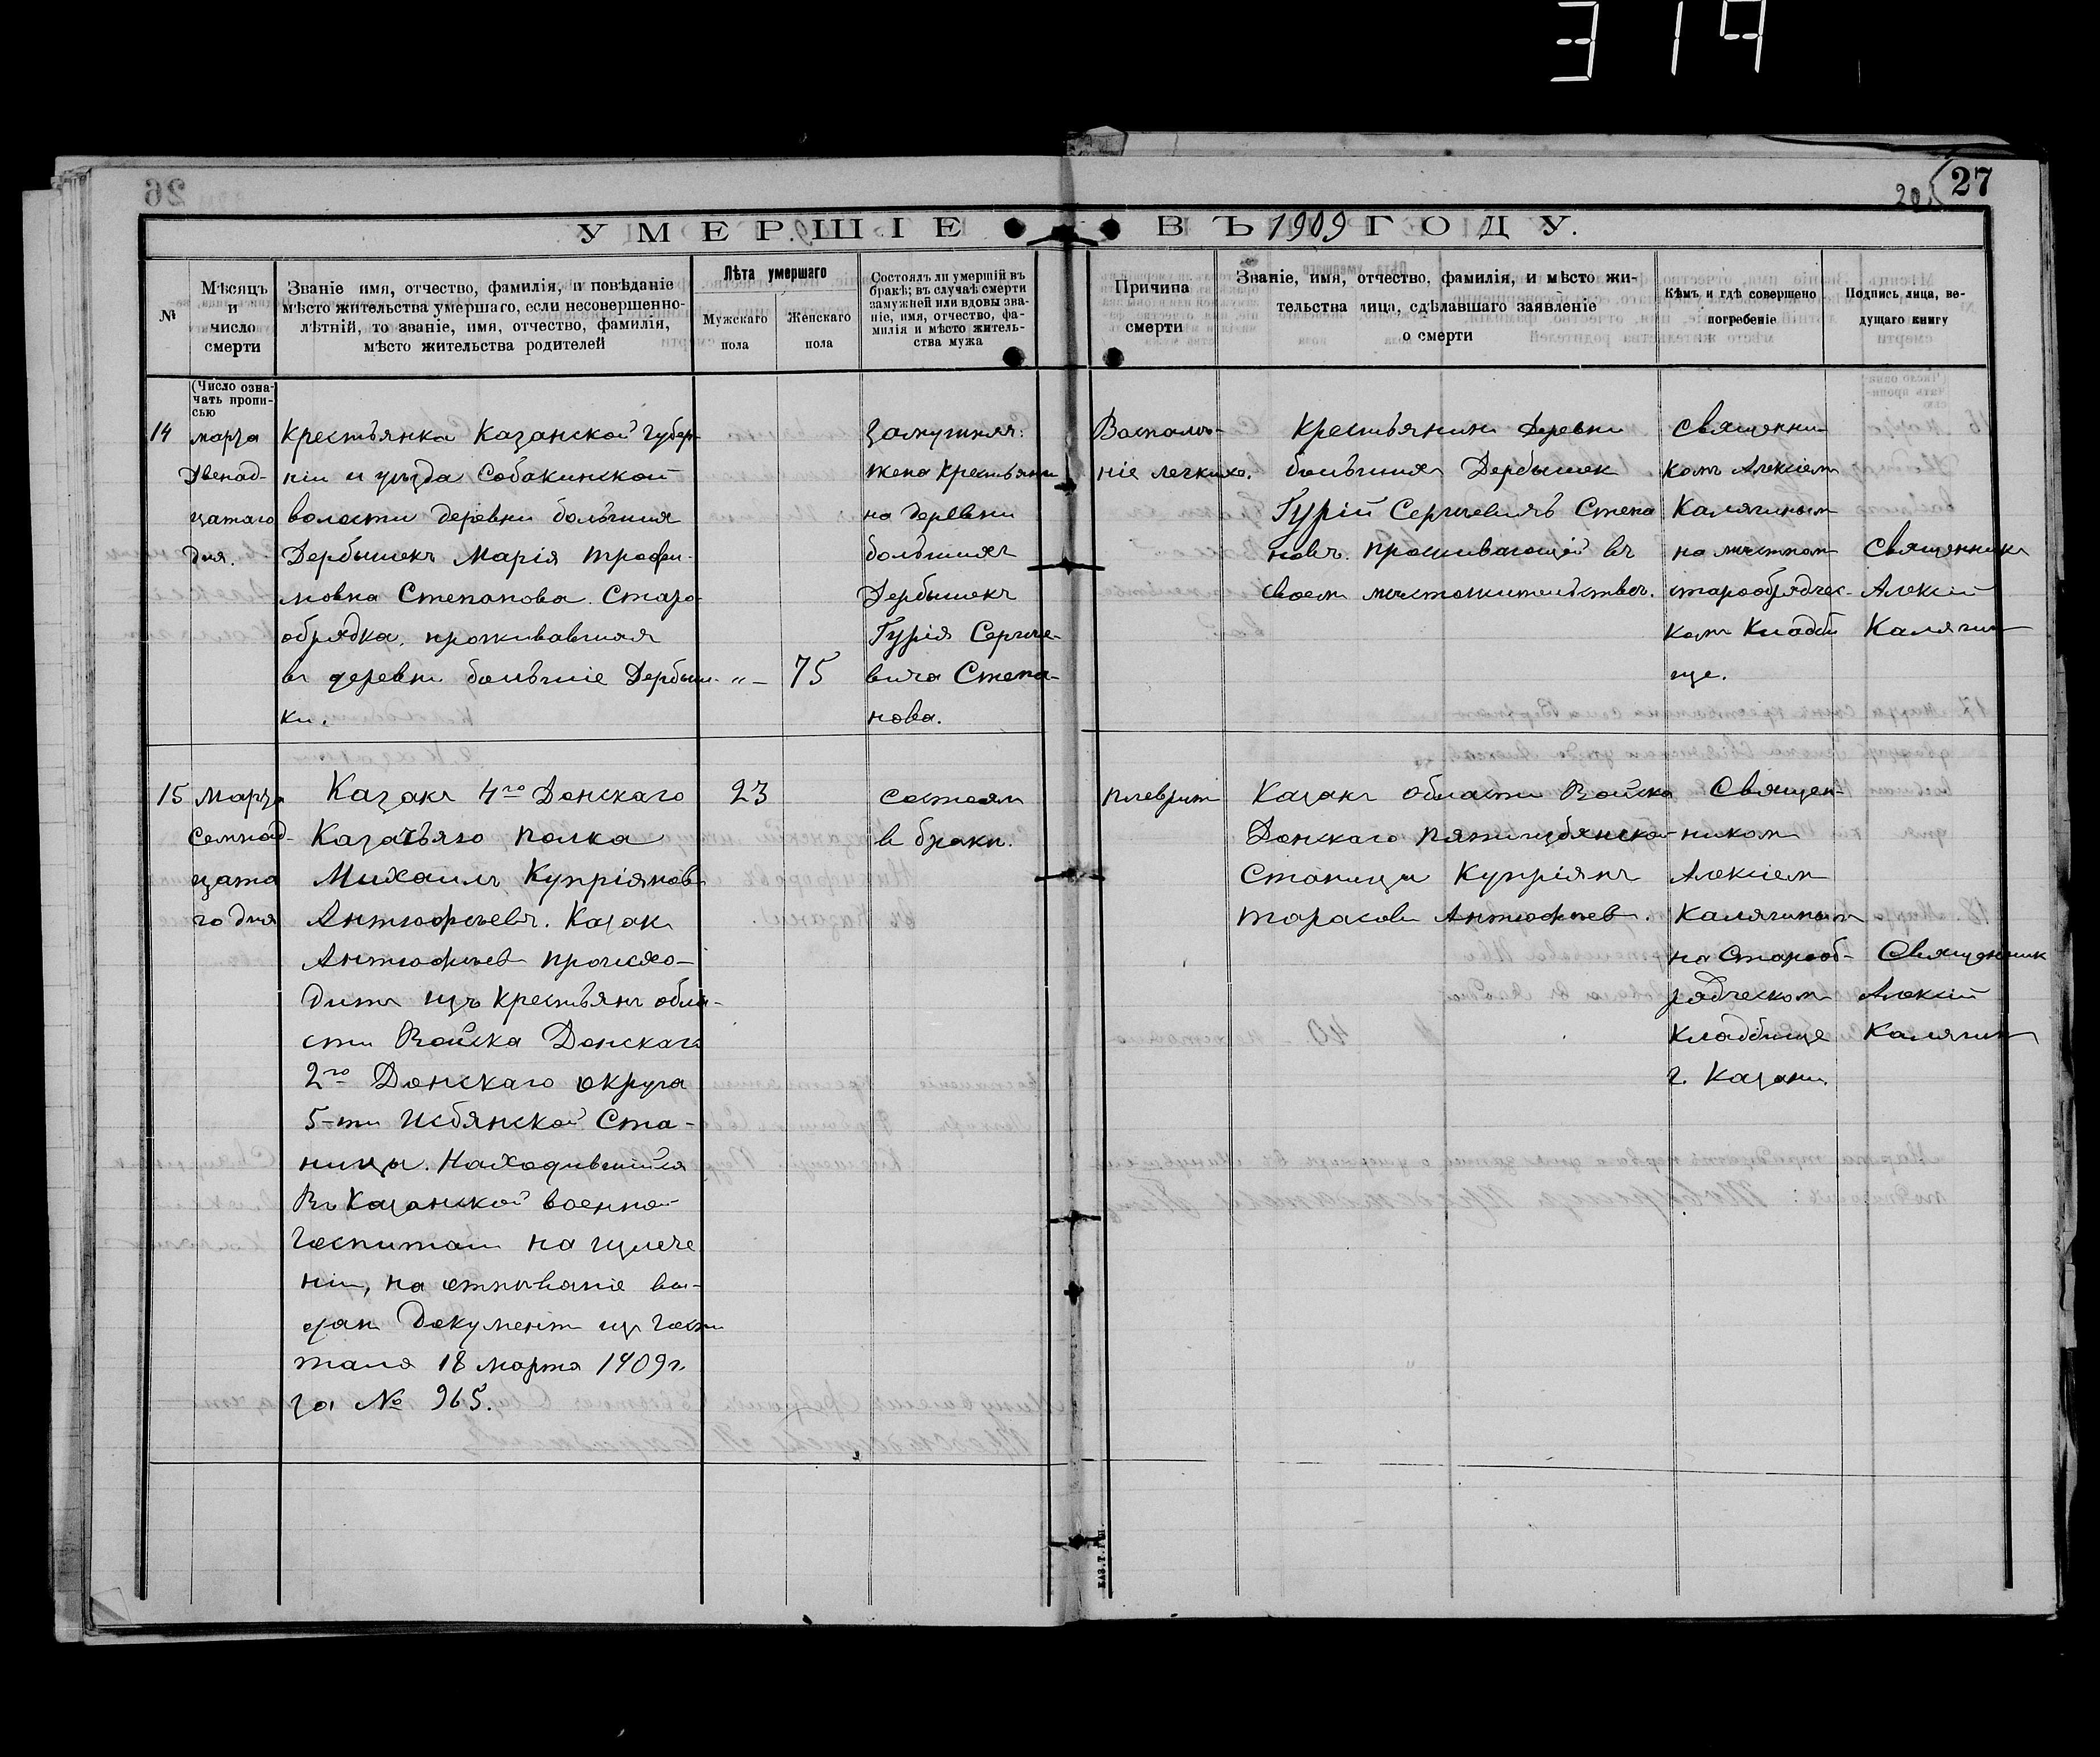 319
26
27
20
УМЕРШІЕ ВЪ 1909 ГОДУ.
№
Мѣсяцъ
и
число
смерти
Званіе имя, отчество, фамилія, и повѣданіе
мѣсто жительства умершаго, если несовершенно-
лѣтній, то званіе, имя, отчество, фамилія,
мѣсто жительства родителей
Лѣта умершаго
Мужскаго
пола
Женскаго
пола
Состоялъ ли умершій въ
бракѣ; въ случаѣ смерти
замужней или вдовы зва-
ніе, имя, отчество, фа-
милія и мѣсто житель-
ства мужа
Причина
смерти
Званіе, имя, отчество, фамилія, и мѣсто жи-
тельства лица, сдѣлавшаго заявленіе
о смерти
Кѣмъ и гдѣ совершено
погребеніе
Подпись лица, ве-
дущаго книгу
(Число озна-
чать пропи-
сью
14
марта
Двенад-
цатаго
дня.
Крестьянка Казанской губер-
ніи и уѣзда Собакинской
волости деревни большия
Дербышекъ Марія Трофи-
мовна Степанова. Старо-
обрядка. проживавшая
въ деревни большіе Дербыш-
ки.
"–
75
Замужняя:
жена Крестьяни
на деревни
большихъ
Дербышекъ
Гурія Сергѣе-
вича Степа-
нова.
Воспале-
ніе легкихъ.
Крестьянинъ Деревни
большихъ Дербышек
Гурій Сергѣевичъ Степа
новъ. проживающій въ
своем мѣстожительстве.
Священни-
комъ Алексіем
Калягиным
на местном
старообрядчес-
ком Кладби
ще.
Священникъ
Алексій
Калягин
15
Марта
Семнад-
цата
го дня
Казакъ 4го Донскаго
Казачьяго полка
Михаилъ Купріянов
Антюфѣевъ. Казак
Антюфѣев происхо-
дитъ изъ Крестьянъ обла-
сти Войска Донскаго
2го Донскаго округа
5-ти Избянской Ста-
ницы. Находившійся
Въ Казанской военно-
госпитали на излече
ніи, на отпѣваніе вы-
дан Документ из госпи
таля 18 марта 1909 г.
за № 965.
23
состоял
в браки.
плеврит
Казакъ области Войска
Донскаго пятиизбянской
Станицы Купріянъ
Тарасов Антюфѣев.
Священ-
ником
Алексіем
Калягиным
на Старооб-
рядческом
Кладбище
г. Казани.
Священник
Алексій
Калягин
КАЗ.Т.Г.П.